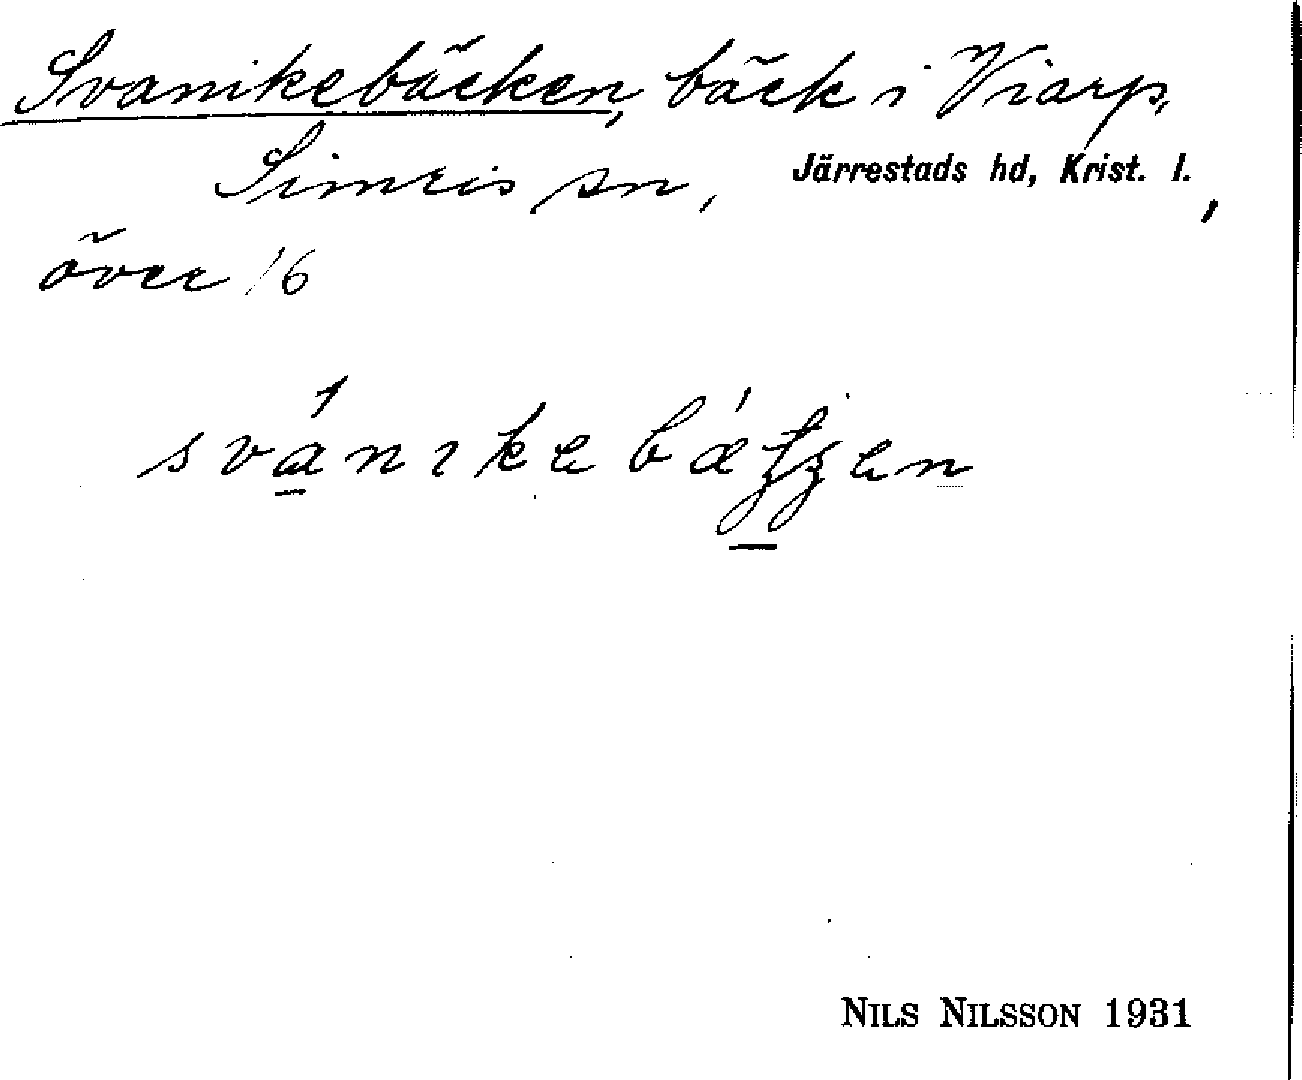 Svanikebäcken, bäck i Viarp,
Simris sn, Järrestads hd, Krist. l.,
över 16
svánıkebǽʒʒen
NILS NILSSON 1931